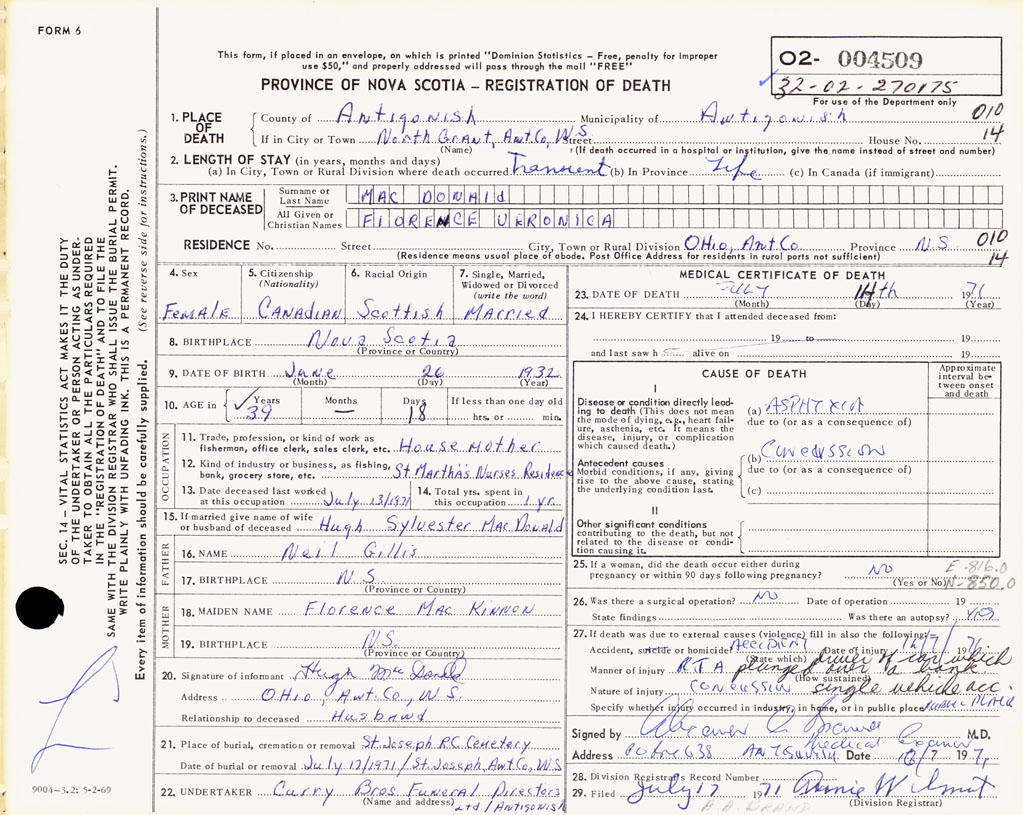 FORM 6
This form, if placed in an envelope, on which is printed "Dominion Statistics – Free, penalty for improper
use $50," and properly addressed will pass through the mail "FREE"
PROVINCE OF NOVA SCOTIA – REGISTRATION OF DEATH
02- 004509
32-02-270175
For use of the Department only
1. PLACE OF DEATH
County of Antigonish Municipality of Antigonish 010
If in City or Town North Grant, Ant. Co, N.S. Street House No. 14
(Name) (If death occurred in a hospital or institution, give the name instead of street and number)
2. LENGTH OF STAY (in years, months and days)
(a) In City, Town or Rural Division where death occurred Transient (b) In Province Life (c) In Canada (if immigrant)
3. PRINT NAME OF DECEASED
Surname or Last Name MAC DONAld
All Given or Christian Names FlORENCE VERONICA
RESIDENCE No. Street City, Town or Rural Division OHio, Ant. Co Province N.S. 010
(Residence means usual place of abode. Post Office Address for residents in rural parts not sufficient) 14
4. Sex FEMALE
5. Citizenship (Nationality) CANAdian
6. Racial Origin Scottish
7. Single, Married, Widowed or Divorced (write the word) MARRied
8. BIRTHPLACE Nova Scotia
(Province or Country)
9. DATE OF BIRTH June 26 1932
(Month) (Day) (Year)
10. AGE in Years 39 Months – Days 18 If less than one day old hrs. or min.
OCCUPATION
11. Trade, profession, or kind of work as fisherman, office clerk, sales clerk, etc. House Mother
12. Kind of industry or business, as fishing, bank, grocery store, etc. St Martha's Nurses Residence
13. Date deceased last worked at this occupation July 13/1971
14. Total yrs. spent in this occupation 1 yr.
15. If married give name of wife or husband of deceased Hugh Sylvester Mac Donald
FATHER
16. NAME Neil Gillis
17. BIRTHPLACE N.S.
(Province or Country)
MOTHER
18. MAIDEN NAME Florence Mac Kinnon
19. BIRTHPLACE N.S.
(Province or Country)
20. Signature of informant Hugh Mac Donald
Address OHio, Ant. Co., N.S.
Relationship to deceased Husband
21. Place of burial, cremation or removal St. Joseph R.C. Cemetery
Date of burial or removal July 17/1971/ St. Joseph, Ant Co, N.S
22. UNDERTAKER Curry Bros. Funeral Directors
(Name and address) Ltd / Antigonish
MEDICAL CERTIFICATE OF DEATH
23. DATE OF DEATH JULY 14th 1971
(Month) (Day) (Year)
24. I HEREBY CERTIFY that I attended deceased from:
19 to 19
and last saw h alive on 19
CAUSE OF DEATH
Approximate interval between onset and death
I
Disease or condition directly leading to death (This does not mean the mode of dying, e.g., heart failure, asthenia, etc. It means the disease, injury, or complication which caused death.)
(a) ASPHYXIA
due to (or as a consequence of)
Antecedent causes
Morbid conditions, if any, giving rise to the above cause, stating the underlying condition last.
(b) Concussion
due to (or as a consequence of)
(c)
II
Other significant conditions contributing to the death, but not related to the disease or condition causing it.
25. If a woman, did the death occur either during pregnancy or within 90 days following pregnancy? NO
(Yes or No)
E-816.0
N-850.0
26. Was there a surgical operation? NO Date of operation 19
State findings Was there an autopsy?
27. If death was due to external causes (violence) fill in also the following:
Accident, suicide or homicide? ACCIDENT Date of injury 14/7/ 1971
(State which) driver of car which
Manner of injury R.T.A plunged over a bank
(How sustained)
Nature of injury Concussion single vehicle acc.
Specify whether injury occurred in industry, in home, or in public place PUBLIC PLACE
Signed by M.D.
Medical Examiner
Address PO Box 638 Antigonish Date 16/7 1971
28. Division Registrar's Record Number
29. Filed July 17 1971
(Division Registrar)
SEC. 14 – VITAL STATISTICS ACT MAKES IT THE DUTY
OF THE UNDERTAKER OR PERSON ACTING AS UNDER-
TAKER TO OBTAIN ALL THE PARTICULARS REQUIRED
IN THE "REGISTRATION OF DEATH" AND TO FILE THE
SAME WITH THE DIVISION REGISTRAR WHO SHALL ISSUE THE BURIAL PERMIT.
WRITE PLAINLY WITH UNFADING INK. THIS IS A PERMANENT RECORD.
Every item of information should be carefully supplied. (See reverse side for instructions.)
9004-3.2: 5-2-69